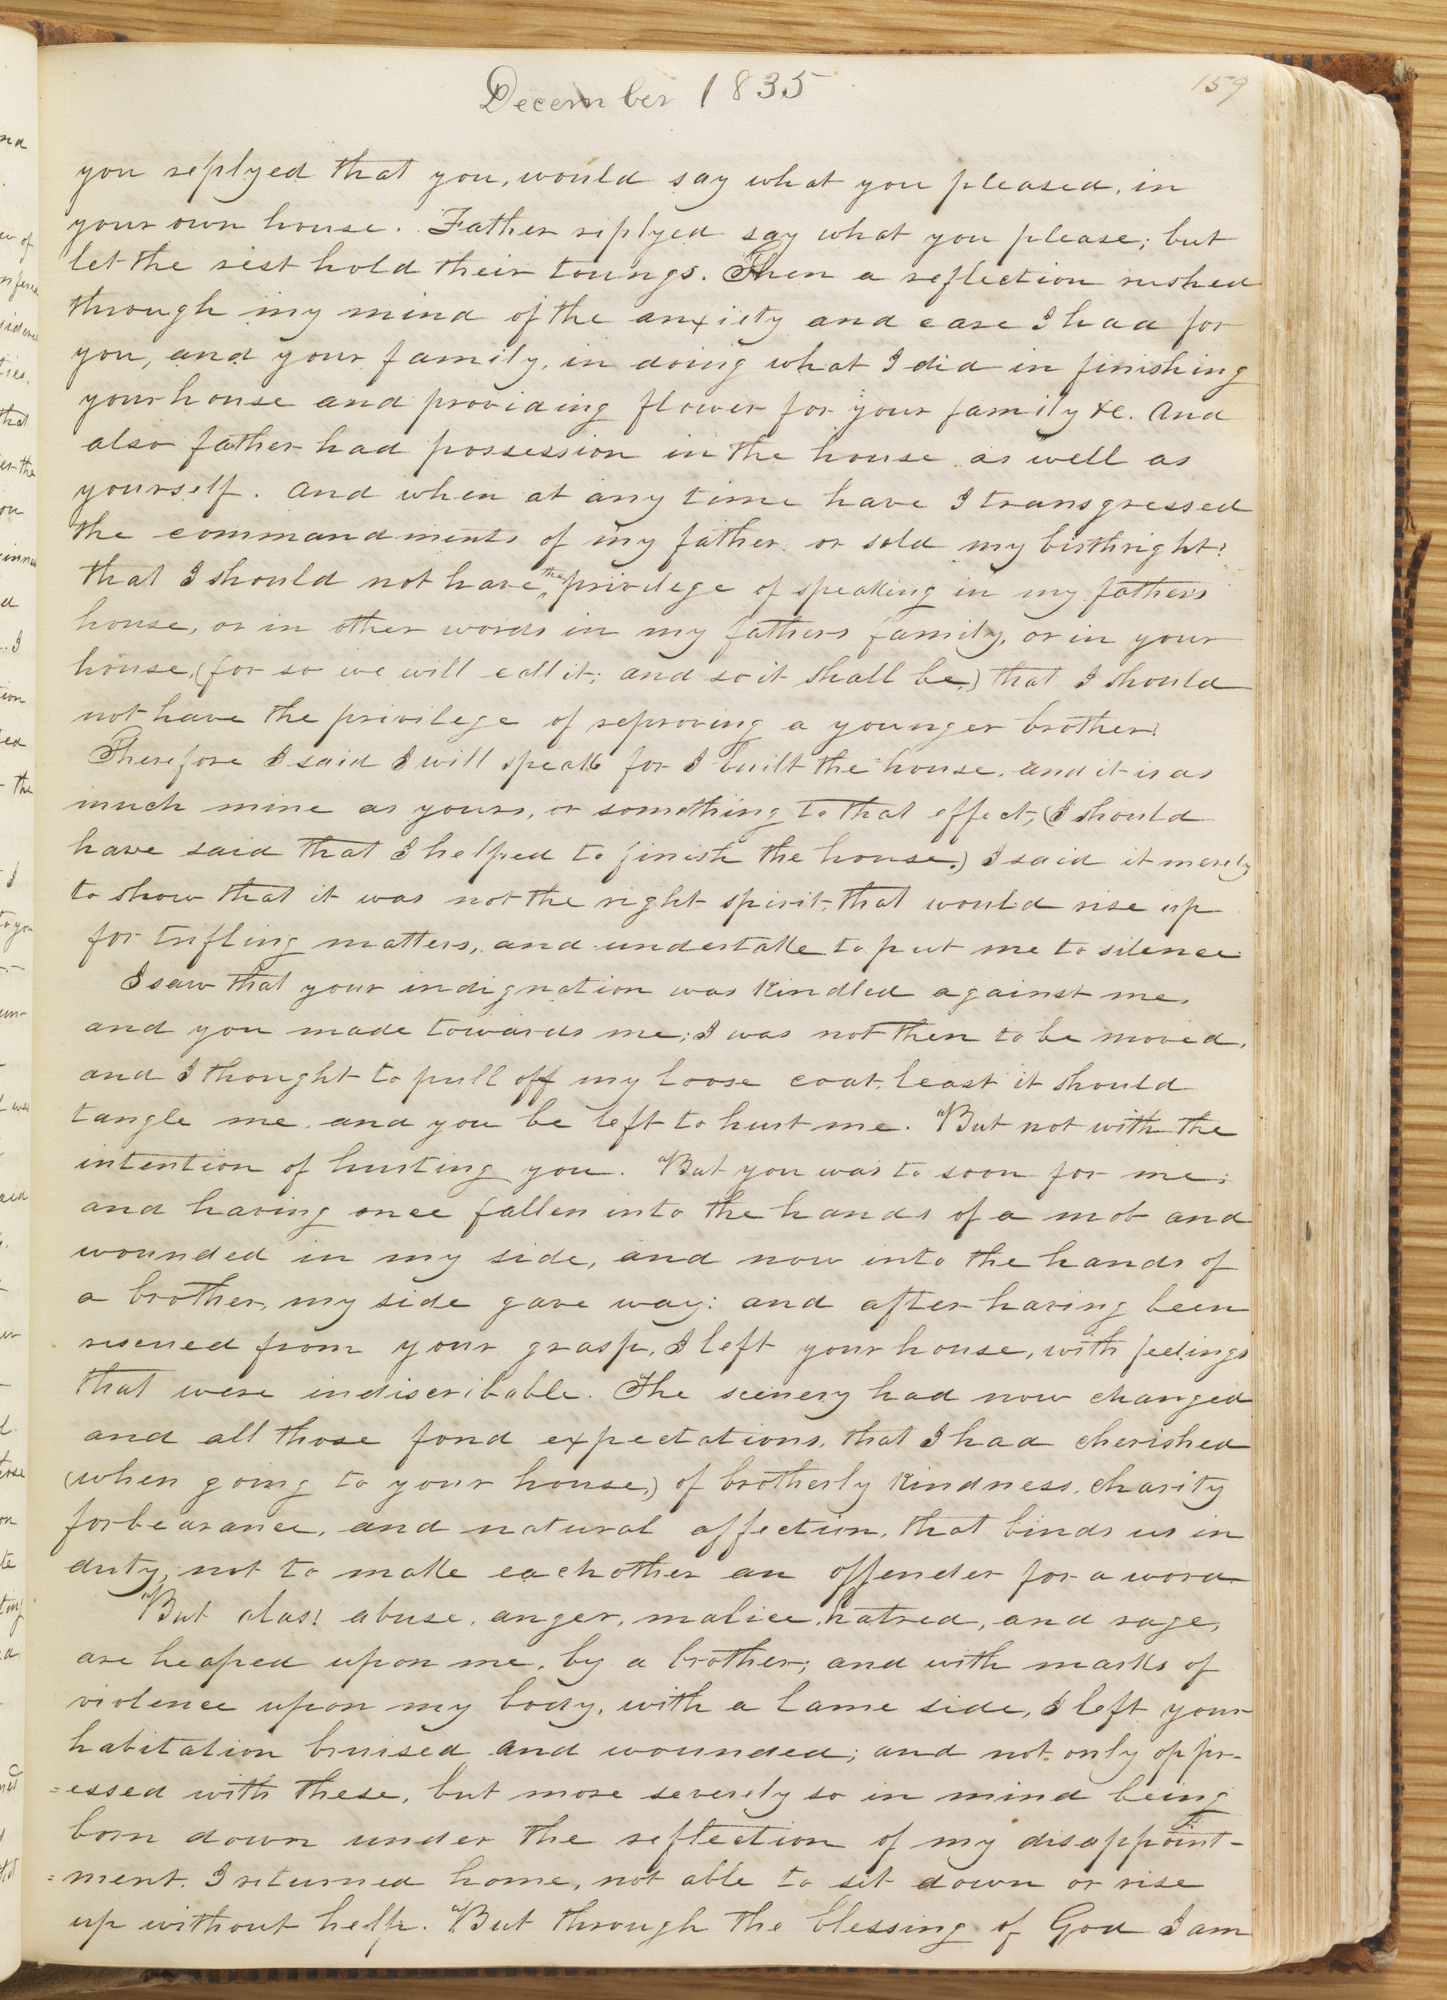 December 1835
159
you replyed that you, would say what you pleased, in
your own house. Father replyed say what you please; but
let the rest hold their toungs. Then a reflection rushed
through my mind of the anxiety and care I had for
you, and your family, in doing what I did in finishing
your house and providing flower for your family &c. And
also father had possession in the house as well as
yourself. And when at any time have I transgressed
the commandments of my father. or sold my birthright!
that I should not have the privilege of speaking in my fathers
house, or in other words in my fathers family, or in your
house, (for so we will call it; and so it shall be,) that I should
not have the privilege of reproving a younger brother!
Therefore I said I will speak for I built the house. and it is as
much mine as yours, or something to that effect, (I should
have said that I helped to finish the house.) I said it merely
to show that it was not the right spirit, that would rise up
for trifling matters, and undertake to put me to silence
I saw that your indignation was kindled against me,
and you made towards me; I was not then to be moved,
and I thought to pull off my loose coat, least it should
tangle me and you be left to hurt me. But not with the
intention of hurting you. But you was to soon for me;
and having once fallen into the hands of a mob and
wounded in my side, and now into the hands of
a brother, my side gave way: and after having been
rescued from your grasp, I left your house, with feelings
that were indiscribable. The scenery had now changed
and all those fond expectations, that I had cherished
(when going to your house,) of brotherly kindness, charity
forbearance, and natural affection, that binds us in
duty, not to make eachother an offender for a word
But alas! abuse, anger, malice, hatred, and rage,
are heaped upon me, by a brother; and with marks of
violence upon my body, with a lame side, I left your
habitation bruised and wounded; and not only oppr-
=essed with these, but more severely so in mind being
born down under the reflection of my disappoint-
=ment. I returned home, not able to sit down or rise
up without help. But through the blessing of God I am